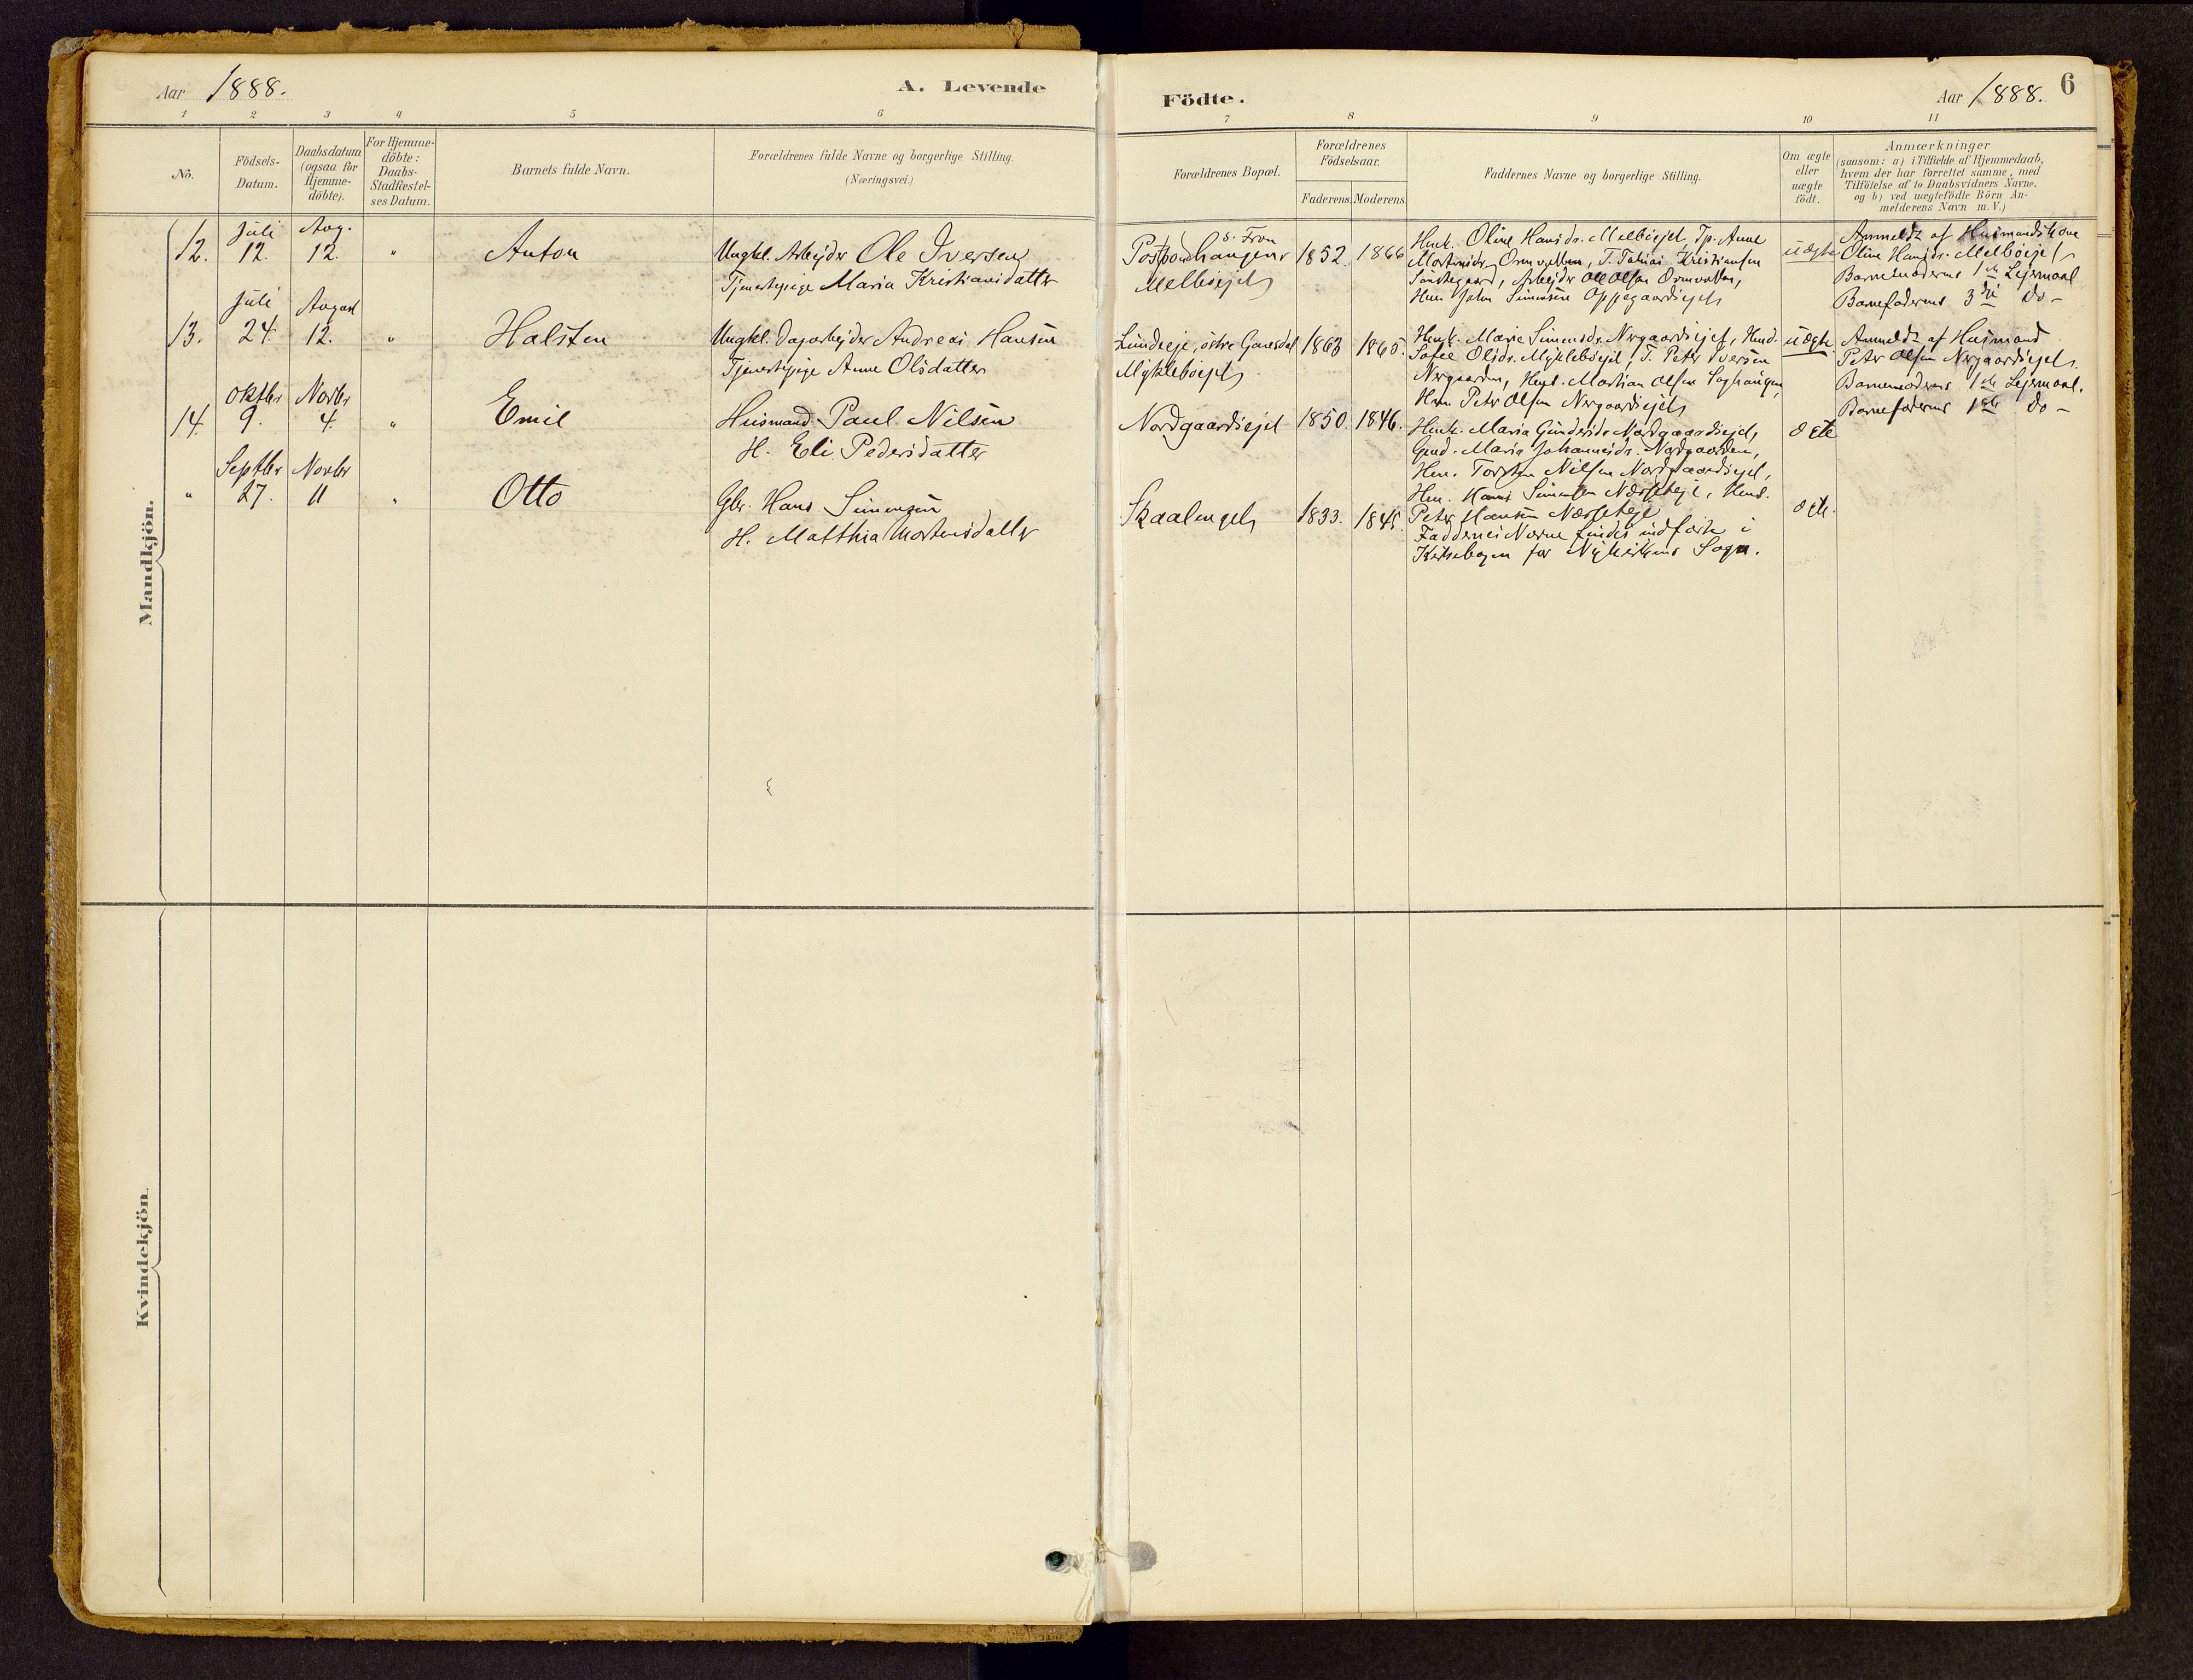 Aar 1888.
A. Levende
Födte.
Aar 1888.
6
1 2 3 4 5 6 7 8 9 10 11
No.
Födsels-Datum.
Daabsdatum (ogsaa for Hjemme-döbte).
For Hjemme-döbte: Daabs-Stadfæstel-ses Datum.
Barnets fulde Navn.
Forældrenes fulde Navne og borgerlige Stilling.
(Næringsvei.)
Forældrenes Bopæl.
Forældrenes Födselsaar.
Faderens. Moderens.
Faddernes Navne og borgerlige Stilling.
Om ægte eller uægte födt.
Anmærkninger
(saasom: a) i Tilfælde af Hjemmedaab,
hvem der har forrettet samme, med
Tilföielse af to Daabsvidners Navne.
og b) ved uægtefödte Börn An-
melderens Navn m. V.)
Mandkjön.
12.
Juli 12.
Aug. 12.
"
Anton
Ungkl. Arbejder Ole Iversen
Tjenestepige Maria Kristiansdatter
S. Fron
Melböejet
1852. 1866
Husk. Oline Hansdr. Melböejet, Tp. Anne
Mortensdr. Ormvolden, T. Tobias Kristiansen
Arbejder Ole Olsen Ormvolden,
Hsm. John Simensen Oppegaardsejet
uægte
Anmeldt af Husmandskone
Oline Hansdr. Melböejet
Barnemoderens 1ste Lejermaal
Barnefaderens 3die do -
13.
Juli 24.
August 12.
"
Halsten
Ungkl. Dagarbejder Andreas Hansen
Tjenestepige Anne Olsdatter
Lundseje, östre Gausdal
Mykleböejet
1863 1865.
Husk. Marie Simensdr. Nergaardsejet,
Sofie Olsdr. Mykleböejet, T. Peter Iversen
Nergaarden, Martian Olsen
Hsm. Peter Olsen Nergaardsejet
uægte
Anmeldt af Husmand
Peter Olsen Nergaardsejet.
Barnemoderens 1ste Lejermaal.
Barnefaderens 1ste do -
14.
Oktbr 9.
Novbr 4.
"
Emil
Husmand Paul Nilsen
H. Eli Pedersdatter
Nordgaardsejet
1850. 1846.
Husk. Maria Gundersdr. Nordgaardsejet,
Maria Johannesdr. Nordgaarden,
Hsm. Torsten Nilsen Nordgaardsejet,
Hsm. Hans Simensen
Peter Hansen
ægte
"
Septbr 27.
Novbr 11
"
Otto
Gbr. Hans Simensen
H. Matthia Mortensdatter
Skaalenget
1833. 1845.
Faddernes Navne findes indförte i
Kirkebogen for Nykirkens Sogn.
ægte.
Kvindekjön.